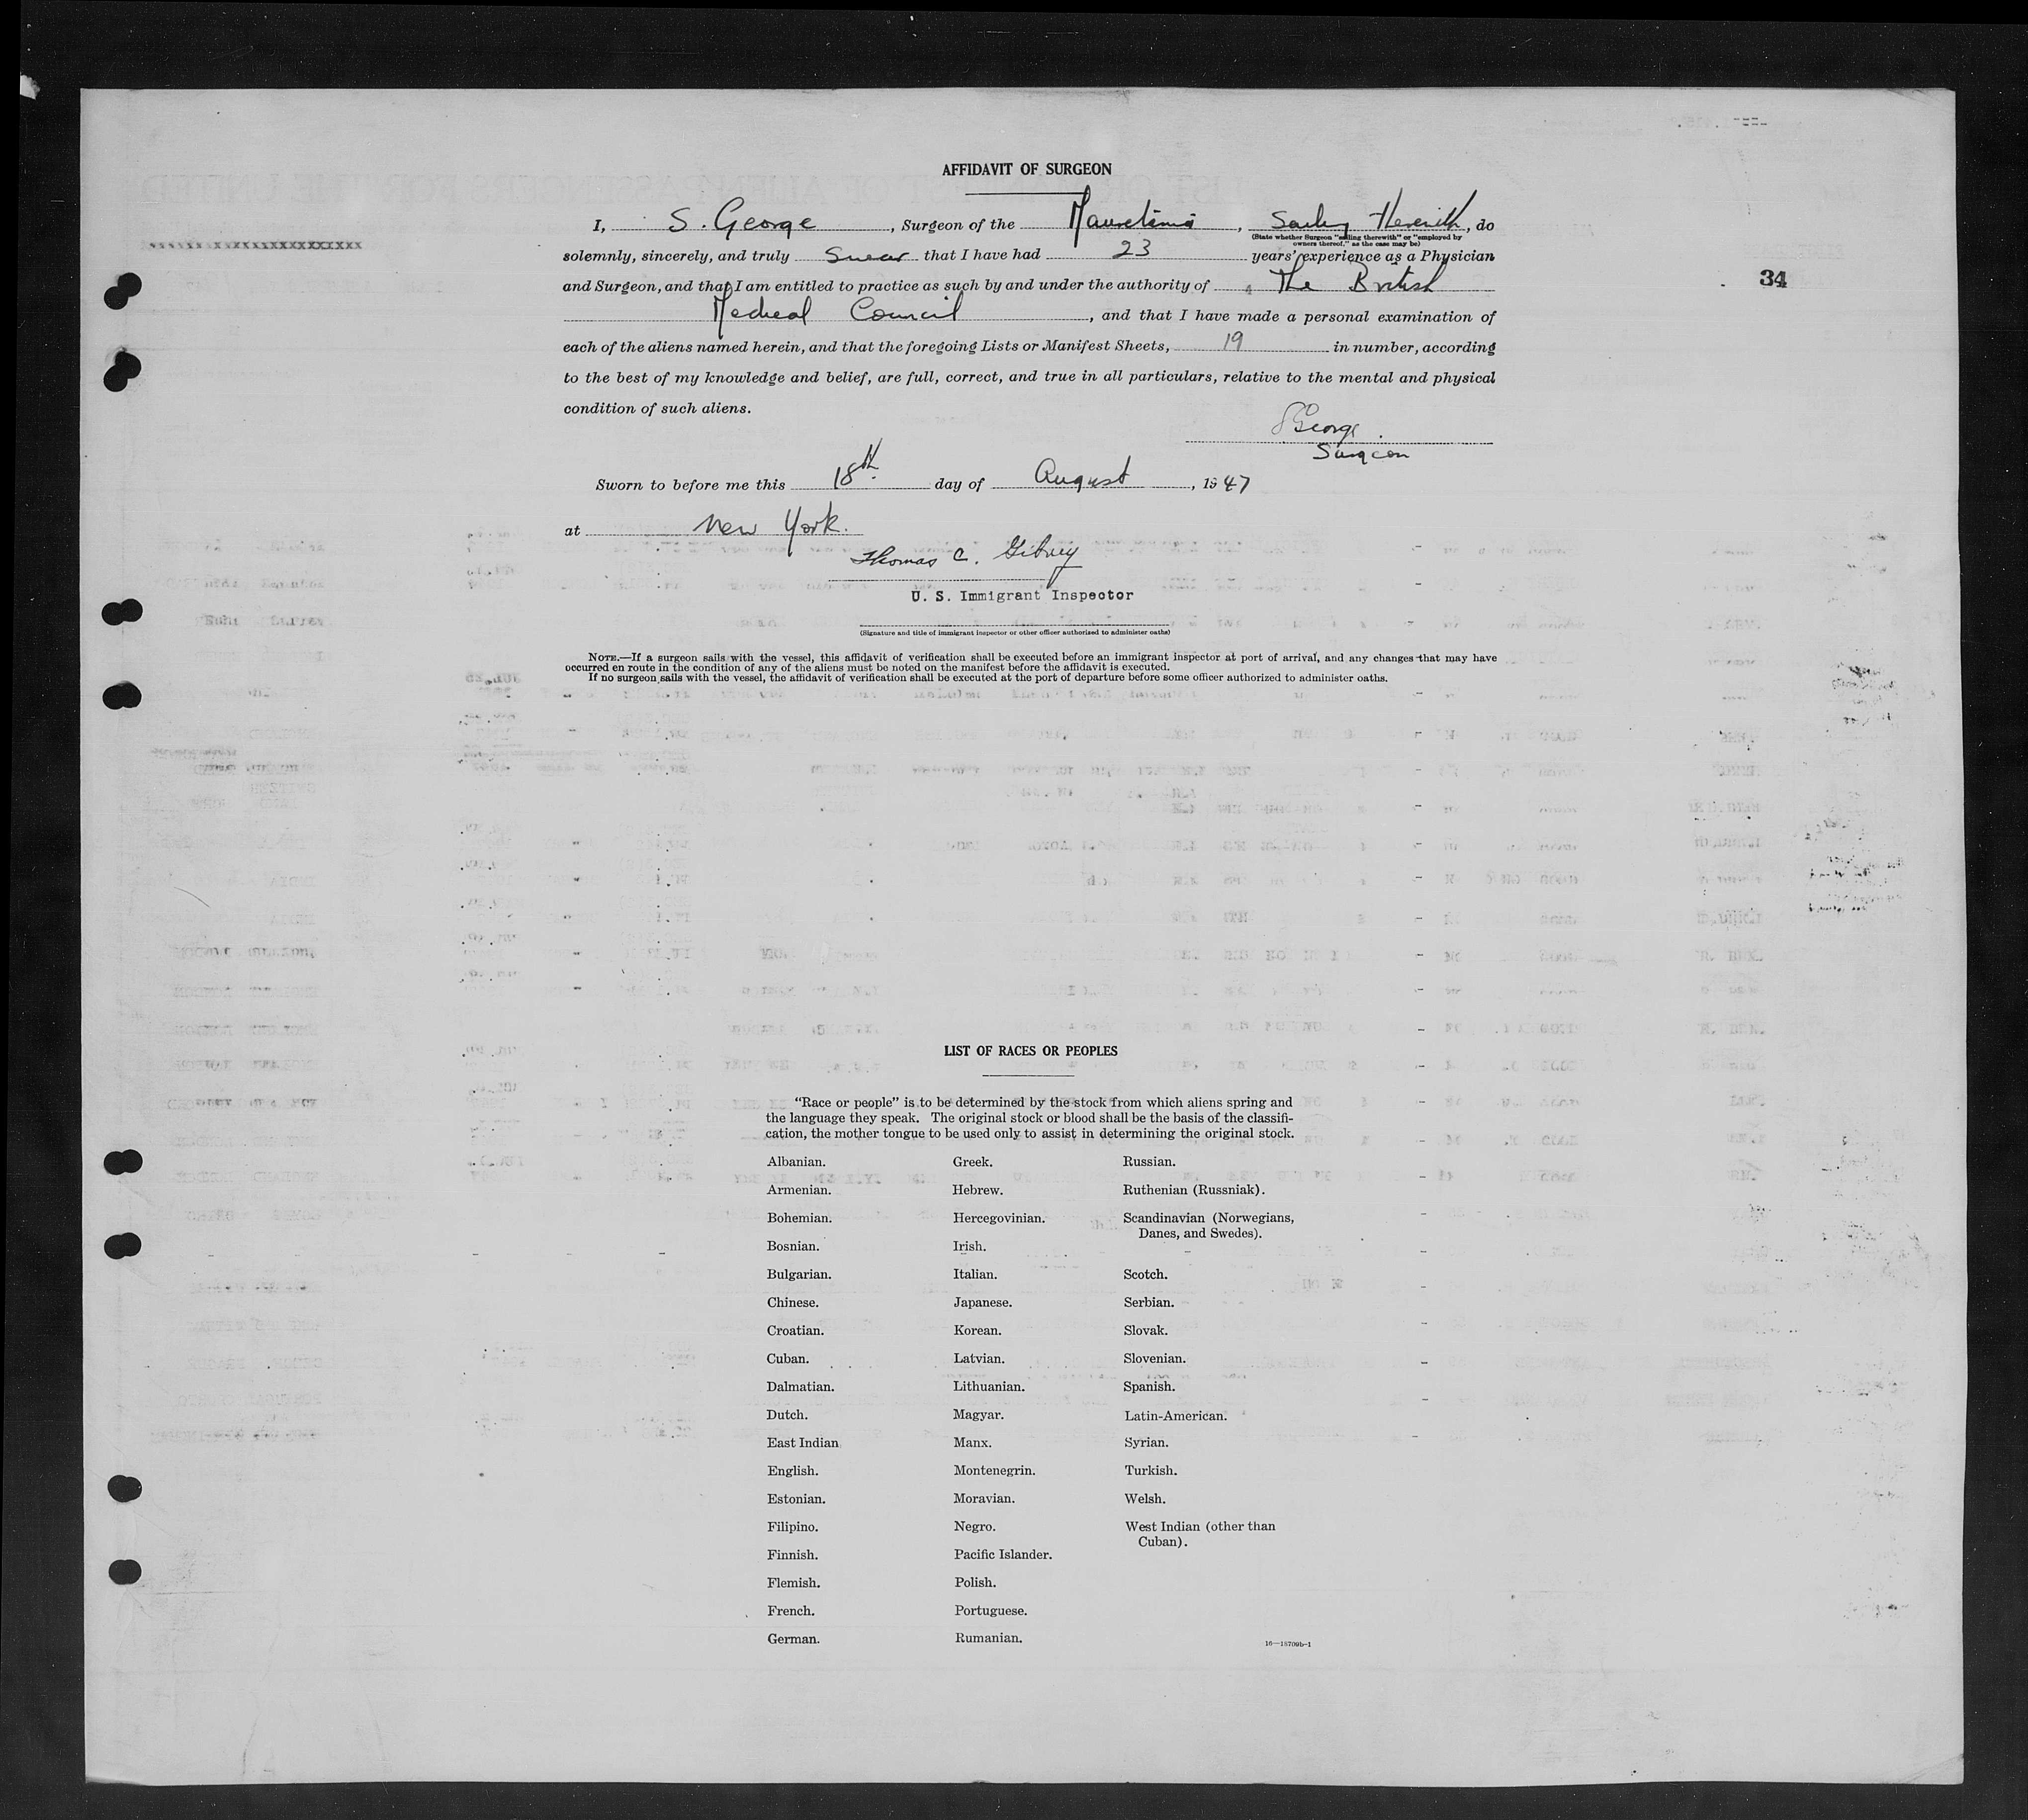 AFFIDAVIT OF SURGEON
I, S. George, Surgeon of the Mauretania, Sailing Therewith, do
(State whether Surgeon "sailing therewith" or "employed by
owners thereof," as the case may be)
solemnly, sincerely, and truly Swear that I have had 23 years' experience as a Physician
and Surgeon, and that I am entitled to practice as such by and under the authority of The British
34
Medical Council, and that I have made a personal examination of
each of the aliens named herein, and that the foregoing Lists or Manifest Sheets, 19 in number, according
to the best of my knowledge and belief, are full, correct, and true in all particulars, relative to the mental and physical
condition of such aliens.
S George.
Surgeon
Sworn to before me this 18th. day of August, 1947
at New York.
Thomas C. Gibney
U. S. Immigrant Inspector
(Signature and title of immigrant inspector or other officer authorized to administer oaths)
NOTE.—If a surgeon sails with the vessel, this affidavit of verification shall be executed before an immigrant inspector at port of arrival, and any changes that may have
occurred en route in the condition of any of the aliens must be noted on the manifest before the affidavit is executed.
If no surgeon sails with the vessel, the affidavit of verification shall be executed at the port of departure before some officer authorized to administer oaths.
LIST OF RACES OR PEOPLES
"Race or people" is to be determined by the stock from which aliens spring and
the language they speak. The original stock or blood shall be the basis of the classifi-
cation, the mother tongue to be used only to assist in determining the original stock.
Albanian.
Armenian.
Bohemian.
Bosnian.
Bulgarian.
Chinese.
Croatian.
Cuban.
Dalmatian.
Dutch.
East Indian
English.
Estonian.
Filipino.
Finnish.
Flemish.
French.
German.
Greek.
Hebrew.
Hercegovinian.
Irish.
Italian.
Japanese.
Korean.
Latvian.
Lithuanian.
Magyar.
Manx.
Montenegrin.
Moravian.
Negro.
Pacific Islander.
Polish.
Portuguese.
Rumanian.
Russian.
Ruthenian (Russniak).
Scandinavian (Norwegians,
Danes, and Swedes).
Scotch.
Serbian.
Slovak.
Slovenian.
Spanish.
Latin-American.
Syrian.
Turkish.
Welsh.
West Indian (other than
Cuban).
16—18709b-1